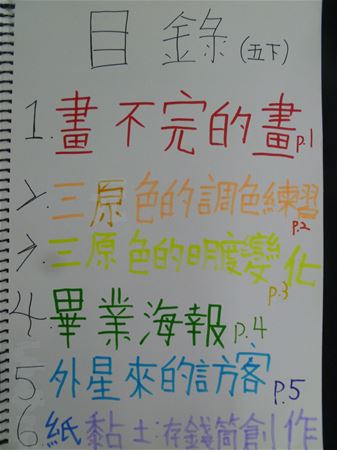 目錄(五下)
1.畫不完的畫p.1
2.三原色的調色練習p.2
3.三原色的明度變化p.3
4.畢業海報p.4
5.外星來的訪客p.5
6.紙黏土:存錢筒創作